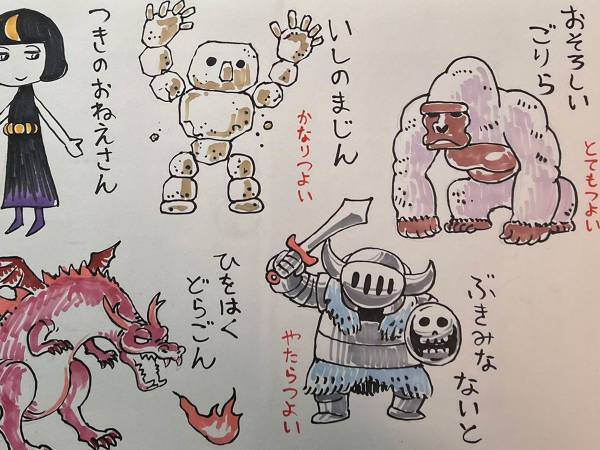 おそろしい
ごりら
とてもつよい
いしのまじん
かなりつよい
つきのおねえさん
ぶきみな
ないと
やたらつよい
ひをはく
どらごん